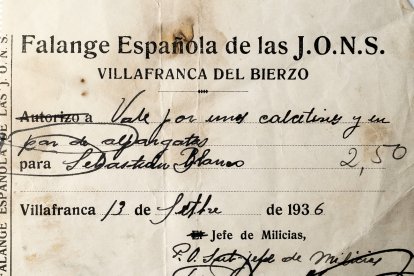 Falange Española de las J.O.N.S.
VILLAFRANCA DEL BIERZO
Autorizo a Vale por unos calcetines y un
par de alpargatas
para Sebastián Blanco 2,50
Villafranca 13 de Setbre de 1936
El Jefe de Milicias,
P.O. jefe de Milicias
FALANGE ESPAÑOLA DE LAS J.O.N.S.